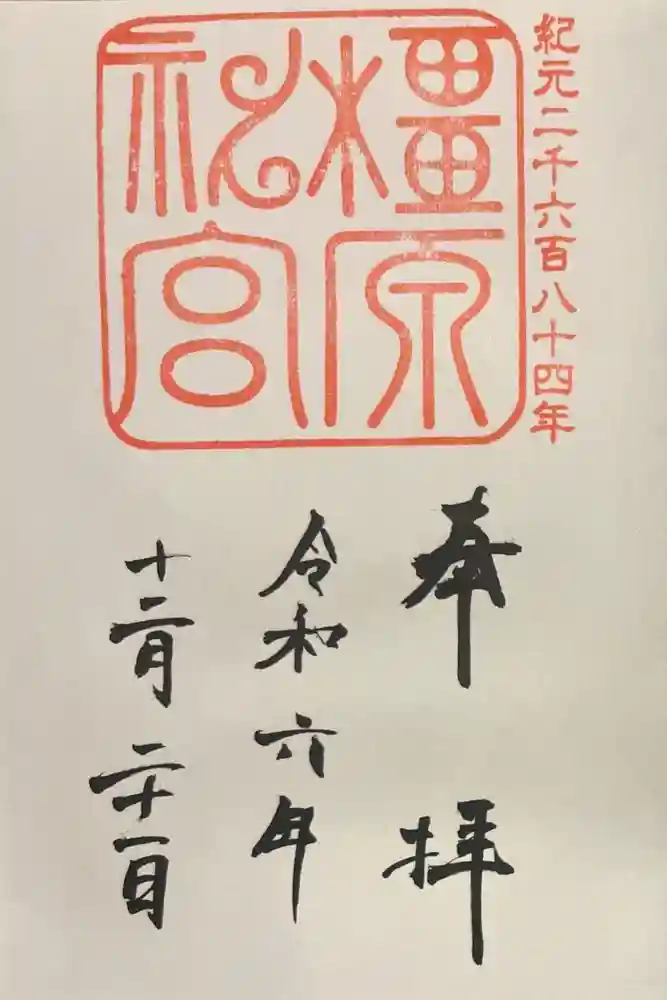 紀元二千六百八十四年
橿原
神宮
奉拝
令和六年
十二月二十一日